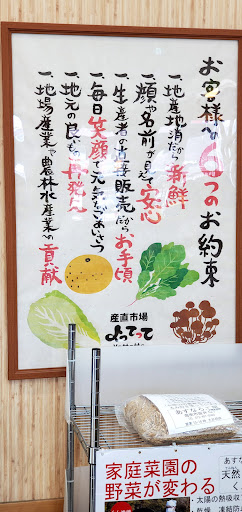 お客様への6つのお約束
一、地産地消だから新鮮
一、顔や名前が見えて安心
一、生産者の直接販売だからお手頃
一、毎日笑顔で元気なあいさつ
一、地元の良いもの再発見
一、地場産業や農林水産業への貢献
産直市場
よってって
家庭菜園の
野菜が変わる
天然
・太陽の熱吸収